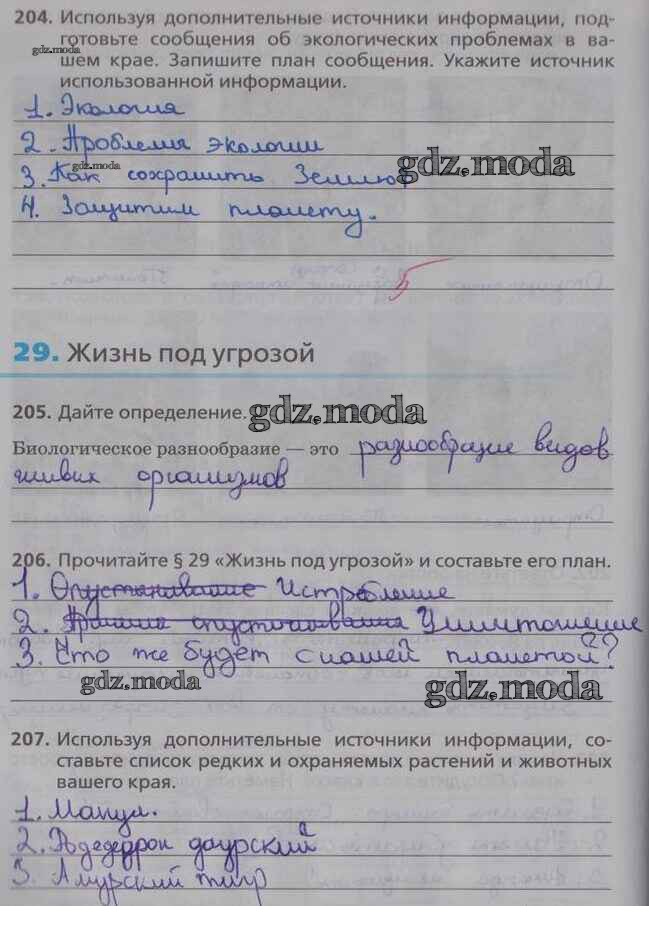 204. Используя дополнительные источники информации, под-
готовьте сообщения об экологических проблемах в ва-
gdz.moda
шем крае. Запишите план сообщения. Укажите источник
использованной информации.
1. Экология
2. Проблемы экологии
gdz.moda
gdz.moda
3. Как сохранить Землю
4. Защитим планету.
5
29. Жизнь под угрозой
205. Дайте определение.
gdz.moda
Биологическое разнообразие — это разнообразие видов
живых организмов
206. Прочитайте § 29 «Жизнь под угрозой» и составьте его план.
1. Опустынивание Истребление
2. опустынивания Уничтожение
3. Что же будет с нашей планетой?
gdz.moda
gdz.moda
207. Используя дополнительные источники информации, со-
ставьте список редких и охраняемых растений и животных
вашего края.
1. Манул.
2. даурский
3. Амурский тигр